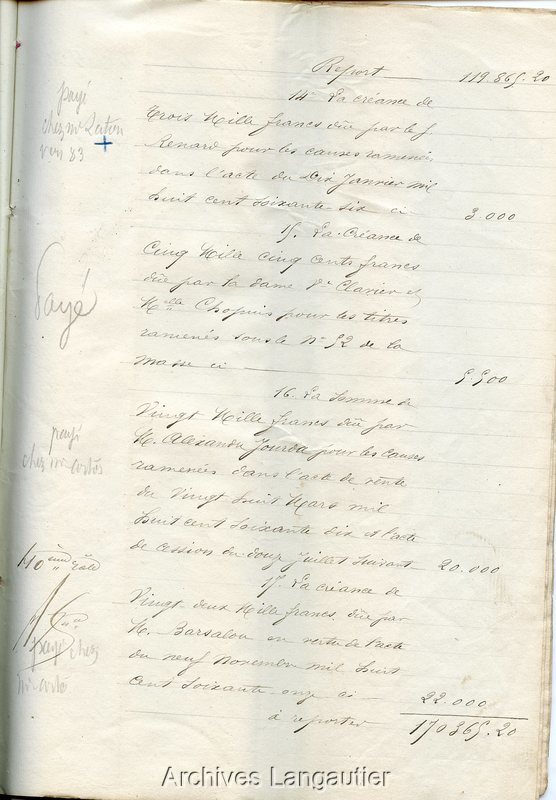 Report 119 865.20
14º La créance de
Trois Mille francs due par le f
Renard pour les causes ramenées
dans l'acte du Dix Janvier mil
huit cent soixante six ci 3.000
15. La Créance de
Cinq Mille cinq cents francs
due par la dame Vᵉ Clavier et
Mˡˡᵉ Chopuis pour les titres
ramenés sous le Nº 52 de la
Masse ci 5 500
16. La Somme de
Vingt Mille francs due par
M. Alexandre Jourda pour les causes
ramenées dans l'acte de vente
du Vingt huit Mars mil
huit cent soixante dix et l'acte
de cession du douze Juillet suivant 20.000
17. La créance de
Vingt deux Mille francs due par
M. Barsalou en vertu de l'acte
du neuf Novembre mil huit
cent soixante onze ci 22.000
à reporter 170 365.20
payé
chez mᵉ
83
Payé
payé
chez mᵉ
10ème rôle
payé chez
mᵉ
Archives Langautier